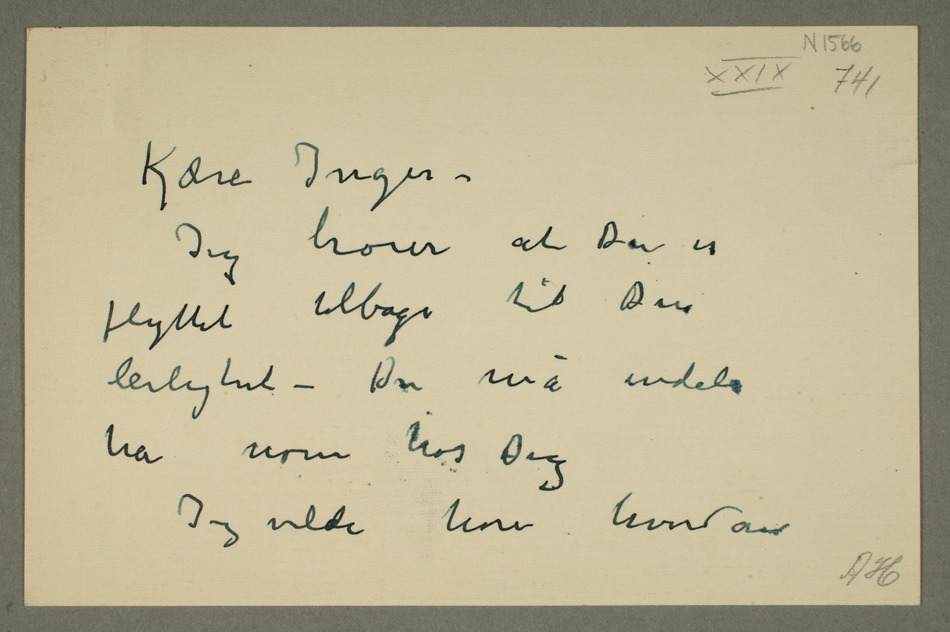 N 1566
XXIX 741
Kjære Inger –
Jeg hører at Du er
flyttet tilbage til Din
leilighet – Du må endelig
ha noen hos Deg
Jeg vilde høre hvordan
AH